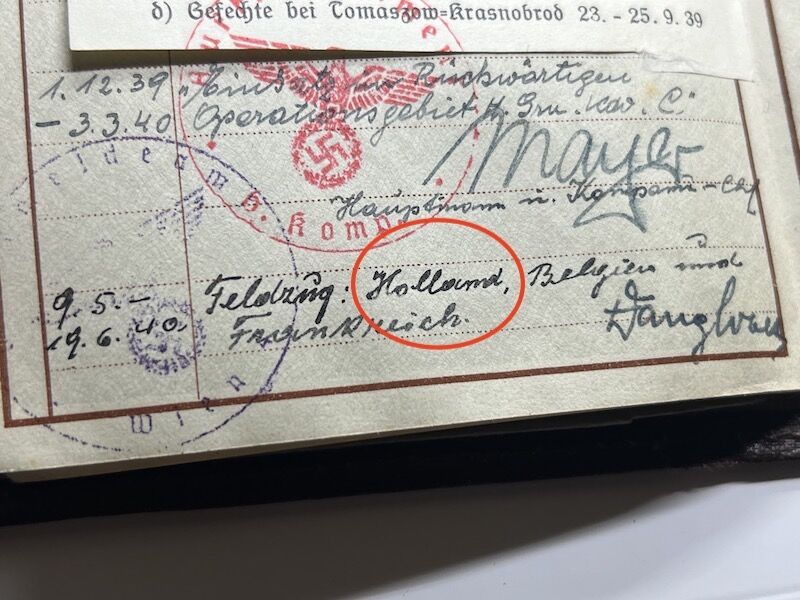 d) Gefechte bei Tomaszow-Krasnobrod 23. - 25. 9. 39
1.12.39 "Einsatz im Rückwärtigen
- 3.3.40 Operationsgebiet H. Gru. C."
Mayer
Hauptmann u. Kompanie-Chef
9.5. - Feldzug: Holland, Belgien und
19.6.40 Frankreich.
Komp.
Wien